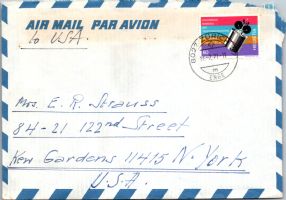 AIR MAIL PAR AVION
to USA.
Mrs. E. R. Strauss
84-21 122nd Street
Kew Gardens 11415 N. York
U.S.A.